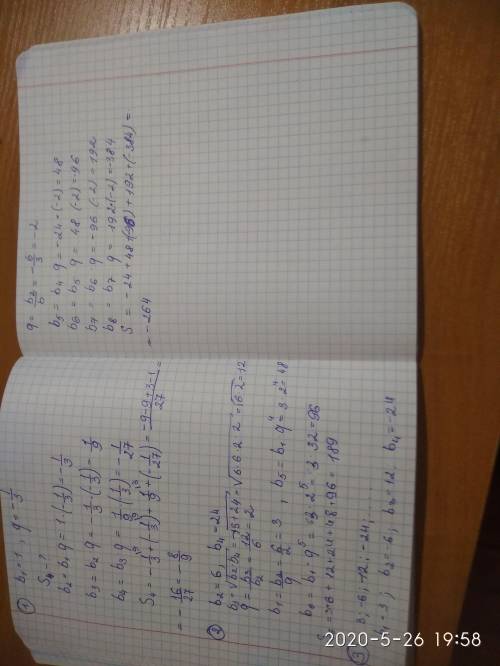 ① b₁=1, q=-1/3
S₄-?
b₂=b₁q=1·(-1/3)=-1/3
b₃=b₂q=-1/3·(-1/3)=1/9
b₄=b₃q=1/9(-1/3)=-1/27
=-16/27=-8/9
② b₂=6, b₄=24
q=b₃/b₂=12/6=2
b₁=b₂/q=6/2=3, b₅=b₁q⁴=3·2⁴=48
b₆=b₁·q⁵=3·2⁵=3·32=96
+12+24+48+96=189
③ 3; -6, -12; -24;
b₂=6, b₃=12. b₄=-24
=-6/3=-2
b₅=b₄q=-24·(-2)=48
b₆=b₅q=48·(-2)=-96
b₇=b₆q=-96·(-2)=192
b₈=b₇q=192·(-2)=-384
S=-24+48+(-96)+192+(-384)=
=-264
2020-5-26 19:58